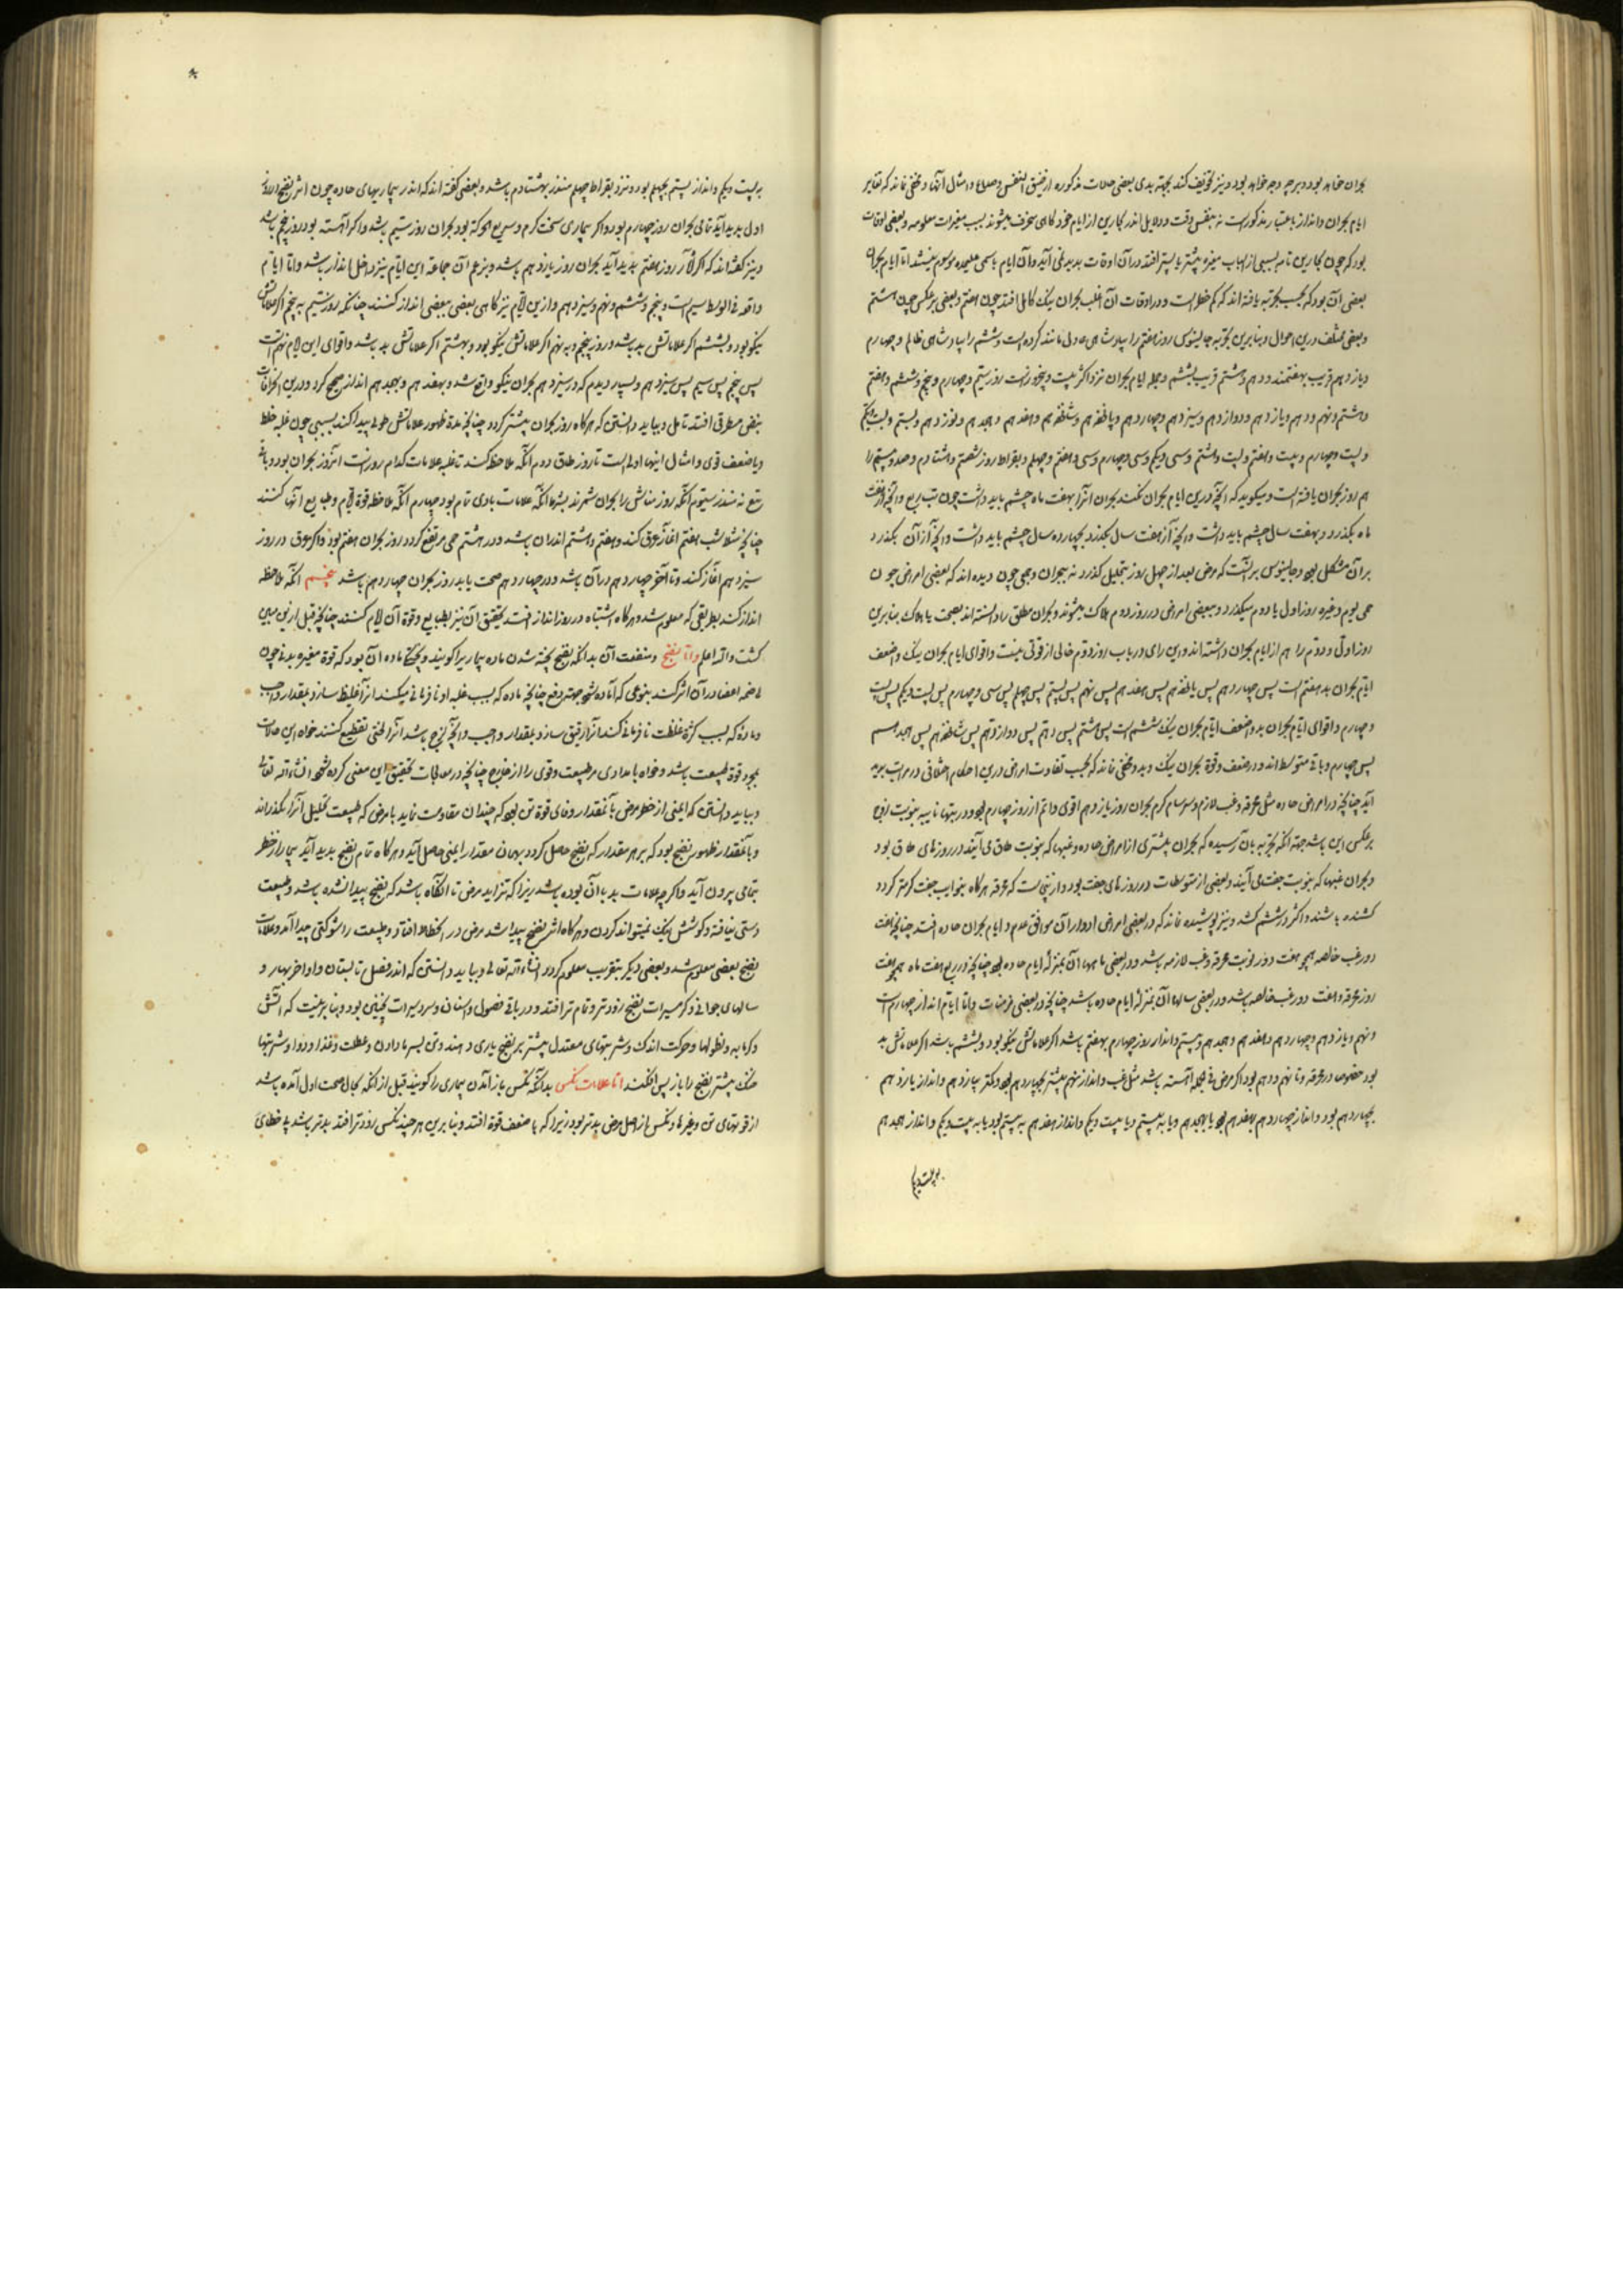 بحران خواهد بود و هرچه وجه خواهد بود و نیز تخویف کند بجهة بدی بعضی حالات مذکوره از ضیق النفس و صداع و امثال آنها و مخفی نماند که تقابر
ایام بحران و انذار باعتبار مذکورست نه بنفس وقت و دلایل اندر بحارین از ایام خود کاهی منحرف میشوند بسبب مغیرات معلومه و بعضی اوقات
بود که چون بحارین تامه بسببی از اسباب مغیره پیشتر یا پستر افتد در آن اوقات پدید نمی آید و آن ایام باسمی علیحده موسوم نمیشد اما ایام بحران
بعضی آن بود که بحسب تجربه یافته اند که کم خطاست و در اوقات آن اغلب بحران نیک کامل افتد چون هفتم و بعضی برعکس چون هشتم
و بعضی مختلف درین احوال و بنابرین تجربه جالینوس روز هفتم را بپادشاهی عادل مانند کرده است و ششم را بپادشاهی ظالم و چهارم
و یازدهم قریب بهفتمند و دهم و هشتم قریب بششم و جمله ایام بحران نزد اکثر بیست و پنج روزست روز سیم و چهارم و پنجم و ششم و هفتم
و هشتم و نهم و دهم و یازدهم و دوازدهم و سیزدهم و چهاردهم و پانزدهم و شانزدهم و هفدهم و هجدهم و نوزدهم و بیستم و بیست و یکم
و بیست و چهارم و بیست و هفتم و بیست و هشتم و سی و یکم و سی و چهارم و سی و هفتم و چهلم و بقراط روز شصتم و هشتادم و صد و بیستم را
هم روز بحران یافته است و میکوید که آنچه درین ایام بحران نکنند بحران آنرا بهفت ماه چشم باید داشت چون تب ربع و آنچه از هفت
ماه بکذرد بهفت سال چشم باید داشت و آنچه از هفت سال بکذرد بچهارده سال چشم باید داشت و آنچه از آن بکذرد
بر آن مشکل بود و جالینوس بر آنست که مرض بعد از چهل روز بتحلیل کذرد نه ببحران و جمعی چون دیده اند که بعضی امراض چون
حمی یوم و غیره روز اول یا دوم میکذرد و ببعضی امراض در روز دوم هلاک میشوند و بحران مطلق را دانسته اند بصحت یا هلاک بنابرین
روز اول و دوم را هم از ایام بحران داشته اند و این رای در باب روز دوم خالی از قوتی نیست و اقوای ایام بحران نیک و اضعف
ایام بحران بد هفتم است پس چهاردهم پس یازدهم پس هفدهم پس نهم پس بیستم پس چهلم پس سی و چهارم پس بیست و یکم پس بیست
و چهارم و اقوای ایام بحران بد و اضعف ایام بحران نیک ششم است پس هشتم پس دهم پس دوازدهم پس شانزدهم پس هجدهم
پس چهارم و باقی متوسط اند و در ضعف و قوة بحران نیک و بد و مخفی نماند که بحسب تفاوت امراض درین احکام اختلافی در مراتب پدید
آید چنانچه در امراض حاده مثل محرقه و غب لازم و سرسام کرم بحران روز یازدهم اقوی و اتم از روز چهارم بود و در تبها نایبه بنوبت زوج
برعکس این باشد جهة آنکه تجربه بآن رسیده که بحران بیشتری از امراض حاده و غبها که بنوبت طاق می آیند در روزهای طاق بود
و بحران غبها که بنوبت جفت می آیند و بعضی از متوسطات در روزهای جفت بود و ازینجاست که محرقه هرکاه بنوایب جفت کرمتر کردد
کشنده باشند و اکثر در ششم کشد و نیز پوشیده نماند که در بعضی امراض ادوار آن موافق عدد ایام بحران حاده افتد چنانچه هفت
دور غب خالصه همچو هفت دور نوبت محرقه و غب لازمه باشد و در بعضی ماهها آن بمنزله ایام حاده بود چنانچه در ربع هفت ماه همچو هفت
روز محرقه و هفت دور غب خالصه باشد و در بعضی سالها آن بمنزله ایام حاده باشد چنانچه در بعضی مزمنات و اما ایام انذار چهارم است
و نهم و یازدهم و چهاردهم و هفدهم و هجدهم و بیستم و انذار روز چهارم بهفتم باشد اکر علاماتش نیکو بود و بششم باشد اکر علاماتش بد
بود خصوصا در محرقه و تا نهم و دهم بود اکر مرض فی الجمله آهسته باشد مثل غب و انذار نهم بیشتر بچهاردهم بود و کمتر بیازدهم و انذار یازدهم
بچهاردهم بود و انذار چهاردهم بهفدهم بود یا بهجدهم و یا به بیستم و یا به بیست و یکم و انذار هفدهم به بیستم بود یا به بیست و یکم و انذار هجدهم
به بیست و یکم
به بیست و یکم و انذار بیستم بچهلم بود و نزد بقراط چهلم منذر بهشتادم باشد و بعضی کفته اند که اندر بیماریهای حاده چون اثر نضج از روز
اول پدید آید تمامی بحران روز چهارم بود و اکر بیماری سخت کرم و سریع الحرکة بود بحران روز سیم باشد و اکر آهسته بود روز پنجم باشد
و نیز کفته اند که اکر آثار روز هفتم پدید آید بحران روز یازدهم باشد و بزعم آن جماعة این ایام نیز داخل انذار باشد و اما ایام
واقعه فی الوسط سیم است و پنجم و ششم و نهم و سیزدهم و ازین ایام نیز کاهی بعضی ببعضی انذار کنند چنانکه روز سیم به پنجم اکر علاماتش
نیکو بود و بششم اکر علاماتش بد باشد و روز پنجم و به نهم اکر علاماتش نیکو بود و بهشتم اکر علاماتش بد باشد و اقوای این ایام نهم است
پس پنجم پس سیم پس سیزدهم و بسیار دیدم که در سیزدهم بحران نیکو واقع شد و بهفدهم و بهجدهم انذار صحیح کرد و درین بحرانات
بنقص مطرقی افتد تامل و بباید دانستن که هرکاه روز بحران بیشتر کردد چنانچه مدة ظهور علاماتش طولی پیدا کند بسببی چون غلبه خلط
و یا ضعف قوی و امثال اینها اولی است تا روز طاق دوم آنکه ملاحظه کنند تا غلبه علامات کدام روزست آنروز بحران بود و باقی
تبع نه منذر سیوم آنکه روز میانش را بحران شمرند بشرط آنکه علامات بادی تام بود چهارم آنکه ملاحظه قوة ایام و طبایع آنها کنند
چنانچه مثلا شب هفتم آغاز عرق کند و هفتم و هشتم اندر آن باشد و در هشتم حمی مرتفع کردد روز بحران هفتم بود و اکر عرق در روز
سیزدهم آغاز کند و تا آخر چهاردهم در آن باشد و در چهاردهم صحت یابد روز بحران چهاردهم باشد پنجم آنکه ملاحظه
انذار کنند بطریقی که معلوم شد و هرکاه اشتباه در روز انذار افتد تحقیق آن نیز بطبایع و قوة آن ایام کنند چنانچه قبل ازین مبین
کشت والله اعلم و اما نضج و منفعت آن بدانکه نضج پخته شدن ماده بیماریرا کویند و پختکی ماده آن بود که قوة مغیره بدنی چون
هاضمه اعضا در آن اثر کند بنوعی که آماده شود جهة دفع چنانچه ماده که بسبب غلبه او نافرمانی میکند آنرا غلیظ سازد بمقدار واجب
و ماده که بسبب کثرة غلظت نافرمانی کند آنرا رقیق سازد بمقدار واجب و آنچه لزج باشد آنرا لختی تقطیع کنند خواه این حالات
بمجرد قوة طبیعت باشد و خواه بامدادی مر طبیعت و قوی را از خارج چنانچه در معالجات تحقیق این معنی کرده شود انشاء الله تعالی
و بباید دانستن که ایمنی از خطر مرض بآنمقدار وفای قوة تن بود که چندان مقاومت نماید با مرض که طبیعت بتحلیل آنرا بکذراند
و بآنمقدار ظهور نضج بود که بر هر مقدار که نضج حاصل کردد بهمان مقدار ایمنی حاصل آید و هرکاه تمام نضج پدید آید بیمار از خطر
بتمامی بیرون آید و اکرچه علامات بد با آن بوده باشد زیرا که تزاید مرض تا آنکاه باشد که نضج پیدا نشده باشد و طبیعت
دستی نیافته و کوشش نیک نمیتواند کردن و هرکاه اثر نضج پیدا شد مرض در انحطاط افتاد و طبیعت را شوکتی پیدا آمد و علامات
نضج بعضی معلوم شد و بعضی دیکر بتقریب معلوم کردد انشاء الله تعالی و بباید دانستن که اندر فصل تابستان و اواخر بهار و
سالهای جوانی و کرمسیرات نضج زودتر و تمام تر افتد و در باقی فصول و اسنان و سردسیرات بخلاف این بود و بنابر نیست که آتش
و کرمابه و نطولها و حرکت اندک و شربتهای معتدل بیشتر بر نضج یاری دهند و تن بسرما دادن و عطلت و غذا و دوا و شربتها
خنک بیشتر نضج را باز پس افکنند اما علامات نکس بدانکه نکس باز آمدن بیماری را کویند قبل از آنکه بحال صحت اول آمده باشد
از قوتهای تن و غیرها و نکس از اصل مرض بدتر بود زیرا که با ضعف قوة افتد و بنابرین هرچند نکس زودتر افتد بدتر باشد یا خطای